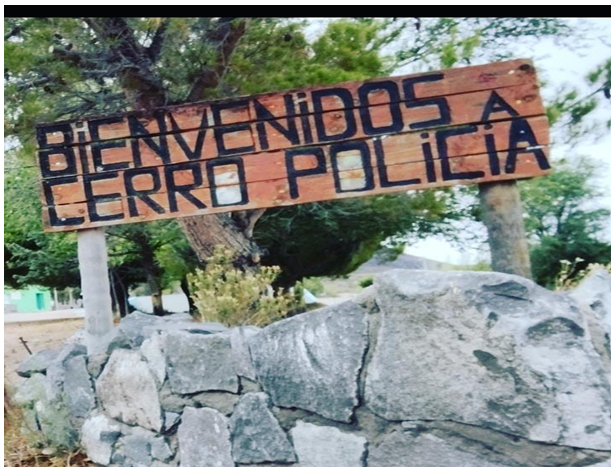 BiENVENiDOS A
CERRO POLiCiA